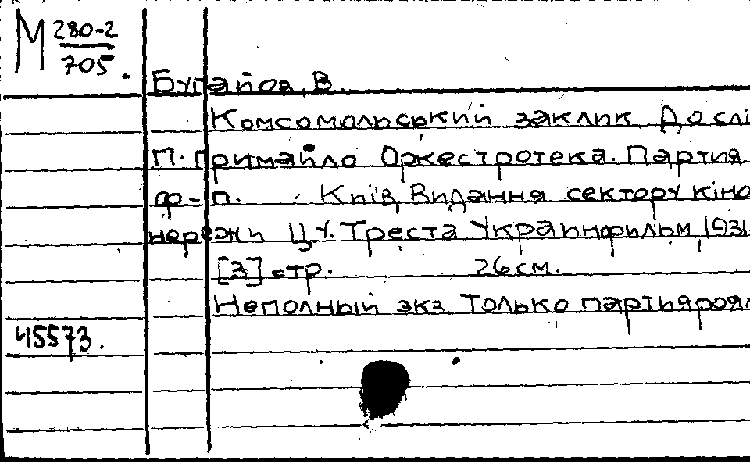 М 280-2
705.
Бугайов, В.
Комсомольський заклик Дослі
П. Гримайло Оркестротека. Партия
ф-п. Київ, Видання сектору кіно
нережи ЦУ. Треста Украинфильм, 1931
[3] стр. 26 см.
Неполный экз. Только партияроял
45573.